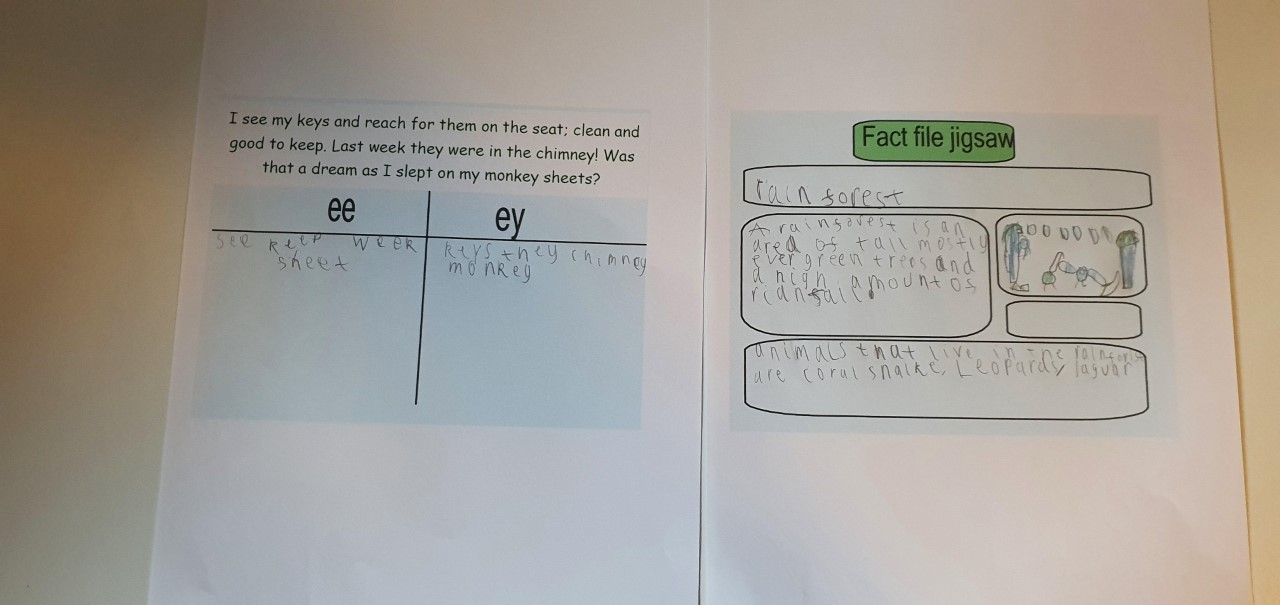 I see my keys and reach for them on the seat; clean and
good to keep. Last week they were in the chimney! Was
that a dream as I slept on my monkey sheets?
ee
ey
see keep week
sheet
keys they chimney
monkey
Fact file jigsaw
rain forest
A rainforest is an
area of tall mostly
evergreen trees and
a high amount of
rianfall
animals that live in the rainforist
are coral snaike, Leopards, Jaguar